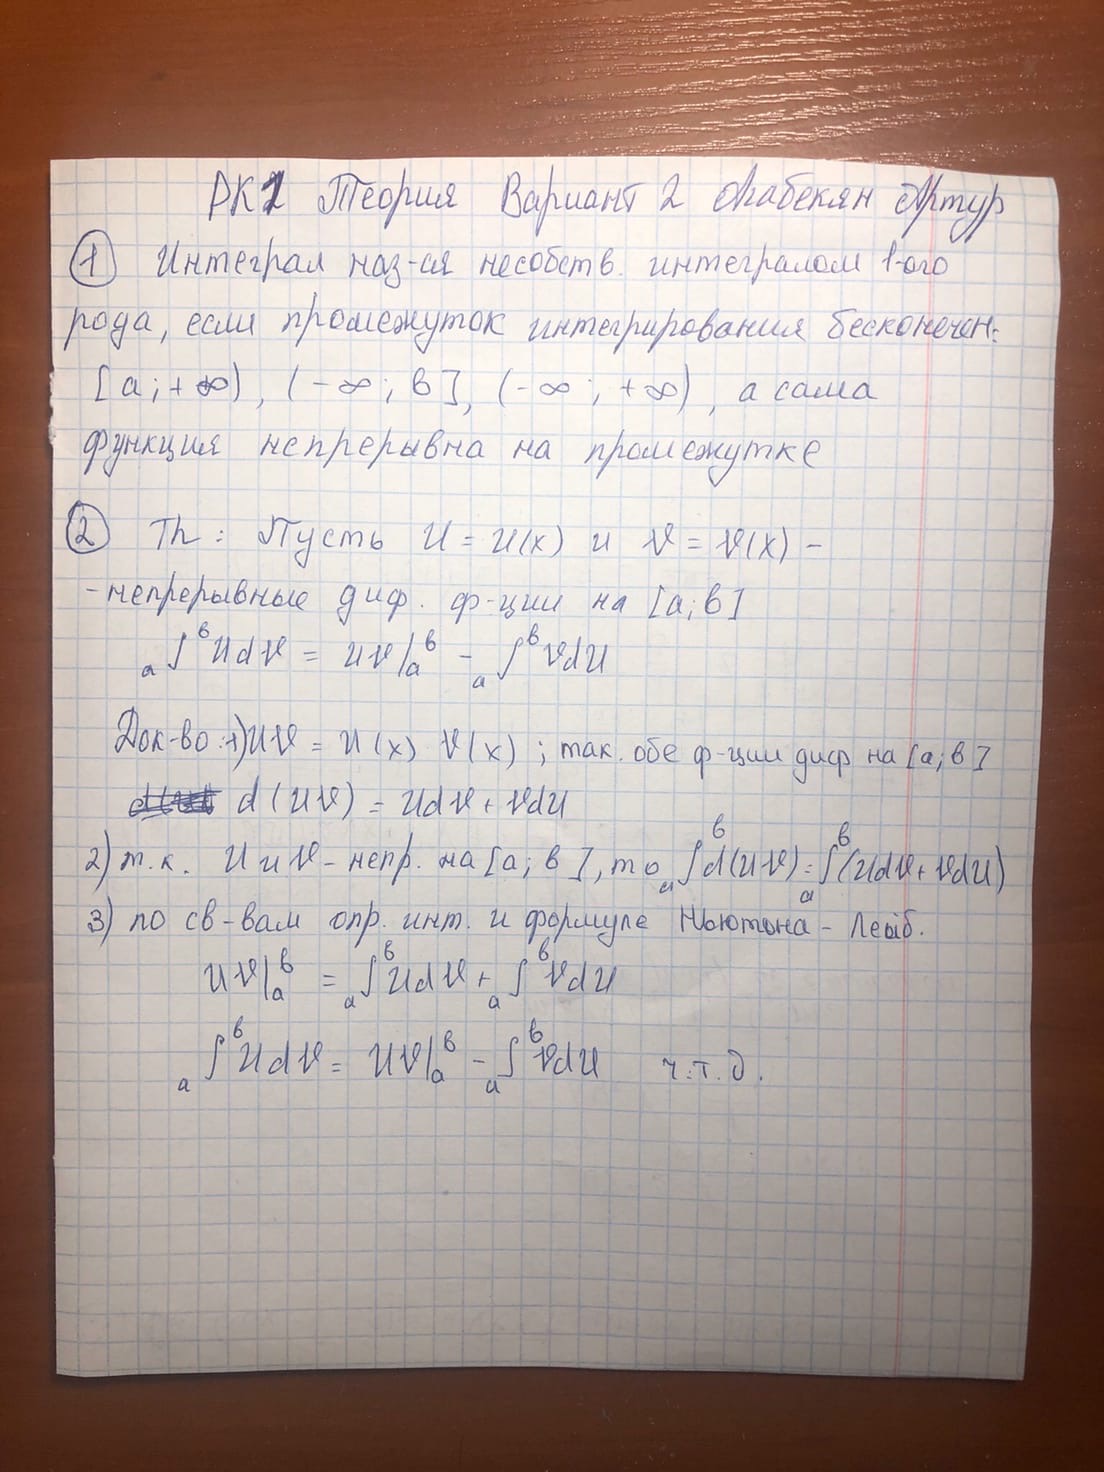 РК1 Теория Вариант 2 Артур
① Интеграл наз-ся несобств. интегралом 1-ого
рода, если промежуток интегрирования бесконечен:
[a; +∞), (-∞; b], (-∞; +∞), а сама
функция непрерывна на промежутке
② Th: Пусть U = U(x) и V = V(x) -
- непрерывные диф. ф-ции на [a; b]
ₐ∫ᵇ UdV = UV|ₐᵇ - ₐ∫ᵇ VdU
Док-во: 1) UV = U(x) V(x); так. обе ф-ции диф на [a; b]
d(UV) = UdV + VdU
2) т.к. U и V - непр. на [a; b], то ₐ∫ᵇ d(UV) = ₐ∫ᵇ (UdV + VdU)
3) по св-вам опр. инт. и формуле Ньютона - Лейб.
UV|ₐᵇ = ₐ∫ᵇ UdV + ₐ∫ᵇ VdU
ₐ∫ᵇ UdV = UV|ₐᵇ - ₐ∫ᵇ VdU ч.т.д.